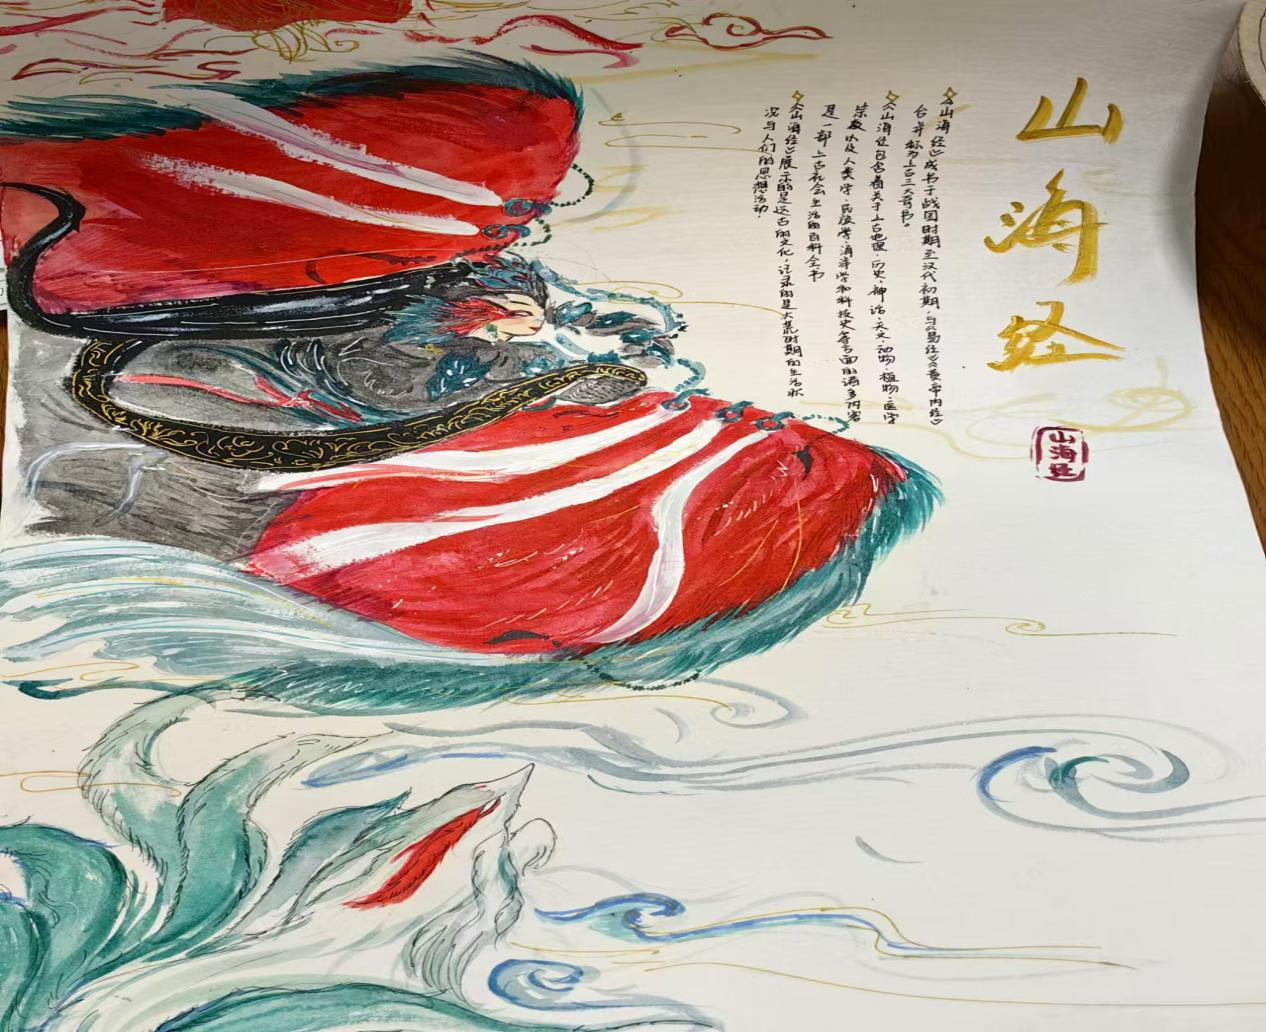 山海经
山海经
◇《山海经》成书于战国时期至汉代初期，与《易经》《黄帝内经》
合并称为上古三大奇书。
◇《山海经》包含着关于上古地理、历史、神话、天文、动物、植物、医学
宗教以及人类学、民族学、海洋学和科技史等方面的诸多内容
是一部上古社会生活的百科全书
◇《山海经》展示的是远古的文化，记录的是大荒时期的生活状
况与人们的思想活动。